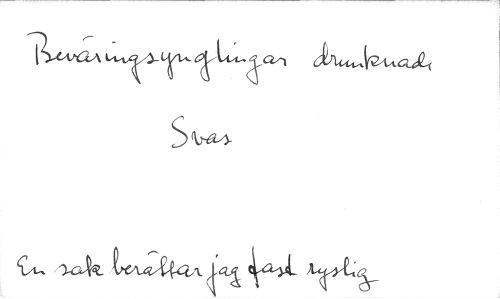 Beväringsynglingar drunknade
Svas
En sak berättar jag fast ryslig